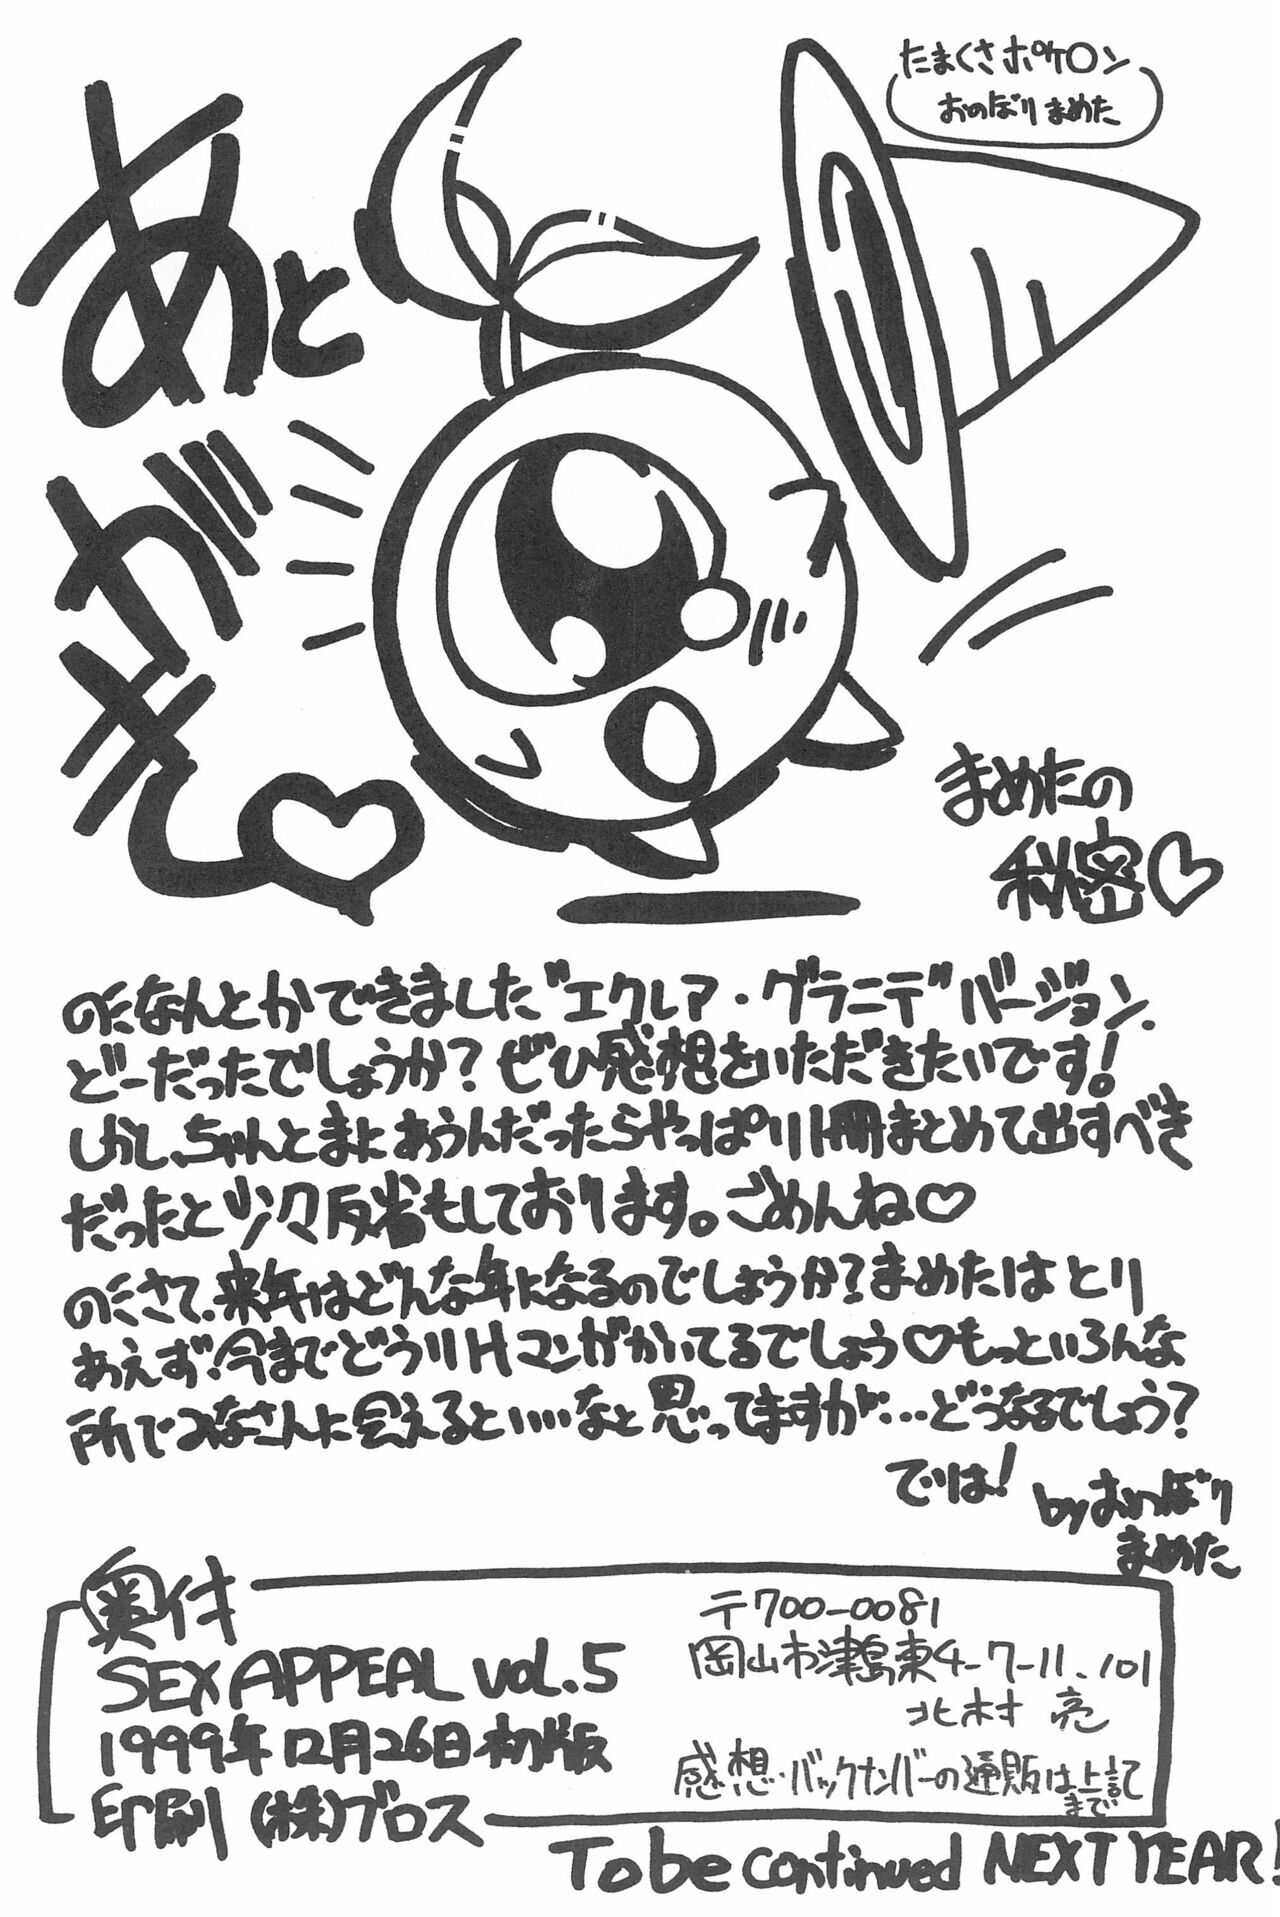 たまくさポケ〇ン
おのぼりまめた
あと
がき♡
まめたの
秘密♡
のだなんとかできました"エクレア・グラニテ"バージョン.
どーだったでしょうか？ぜひ感想をいただきたいです!
しかし、ちゃんとまにあうんだったらやっぱり1冊まとめて出すべき
だったと少々反省もしております。ごめんね♡
のくさて、来年はどんな年になるのでしょうか？まめたはとり
あえず、今までどうりHマンガかいてるでしょう♡もっといろんな
所でみなさんに会えるといいなと思ってますが…どうなるでしょう？
では!
byおのぼり
まめた
奥付
SEX APPEAL vol.5
1999年12月26日初版
印刷 (株)ブロス
〒700-0081
岡山市津島東4-7-11.101
北村 亮
感想・バックナンバーの通販は上記
まで
To be continued NEXT YEAR!